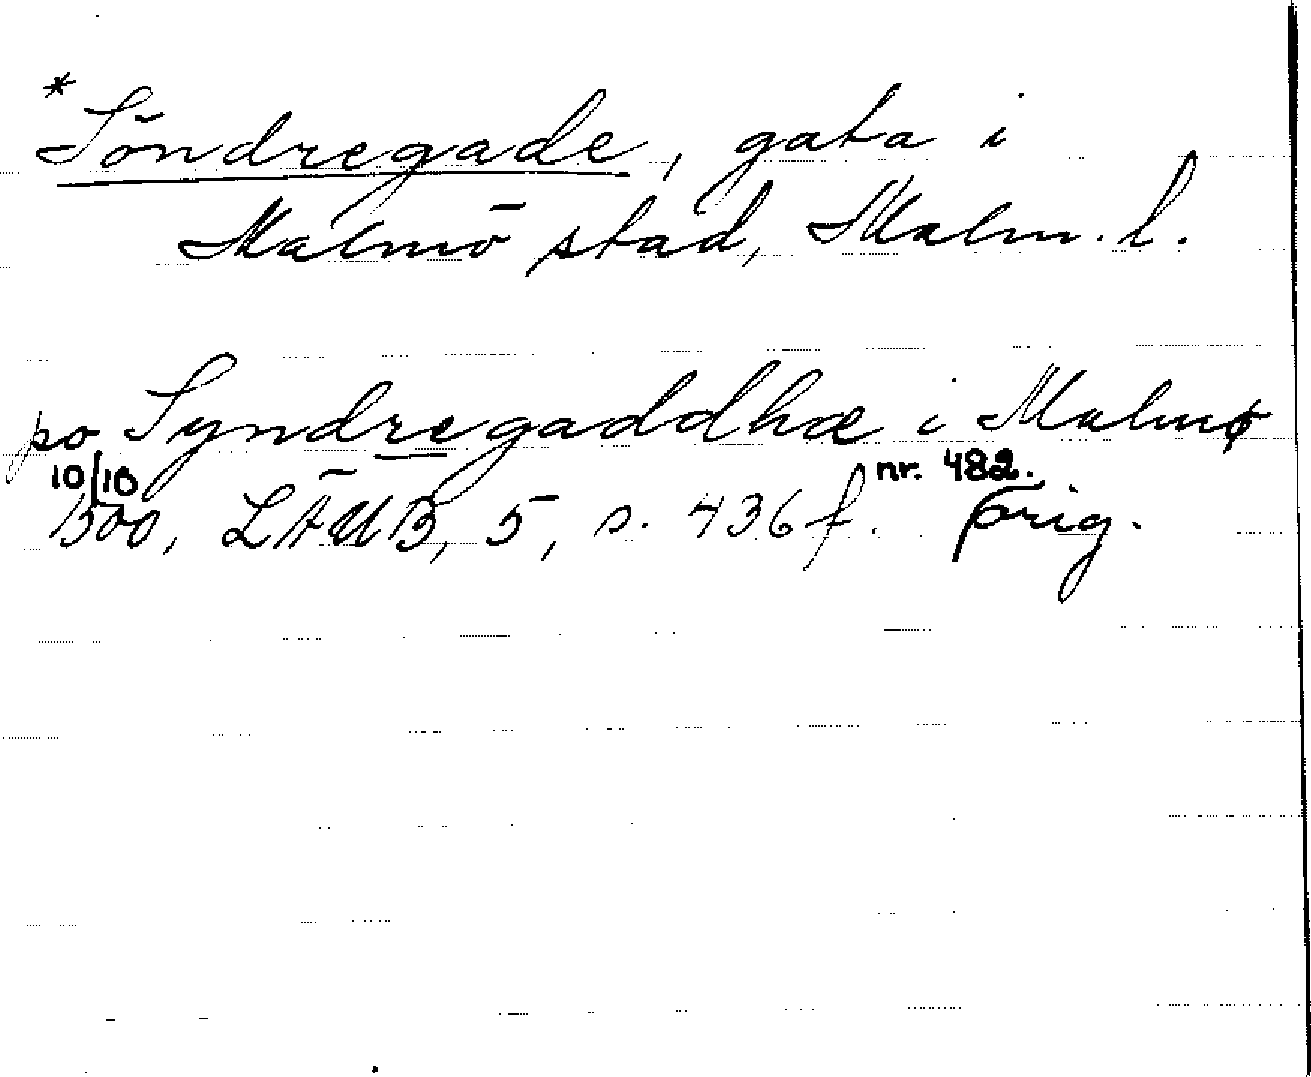 * Söndregade, gata i
Malmö stad, Malm. l.
po Syndregaddhæ i Malmø
10/10 nr. 482.
1500, LÄUB, 5, s. 436 f. Orig.